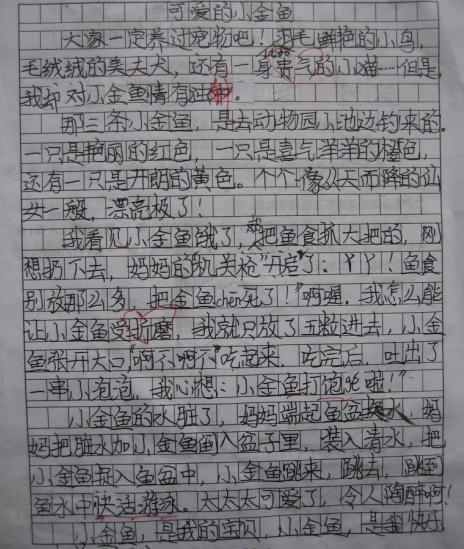 可爱的小金鱼
大家一定养过宠物吧！羽毛鲜艳的小鸟，
毛绒绒的美丈犬，还有一身贵气的小猫……但是，
我却对小金鱼情有
那三条小金鱼，是去动物园小池边钓来的。
一只是艳丽的红色，一只是喜气洋洋的橙色，
还有一只是开朗的黄色。个个像从天而降的仙
女一般，漂亮极了！
我看见小金鱼饿了，把鱼食抓大把的，刚
想扔下去，妈妈的“机关枪”开启了：丫丫！鱼食
别放那么多，把金鱼chen死了！”啊喔，我怎么能
让小金鱼受折磨，我就只放了五粒进去，小金
鱼张开大口“啊不啊不”吃起来，吃完后，吐出了
一串小泡泡，我心想：小金鱼打饱gé啦！”
小金鱼的水脏了，妈妈端起鱼盆换水，妈
妈把脏水加小金鱼倒入盆子里，装入清水，把
小金鱼捉入鱼盆中，小金鱼跳来，跳去，跳到
鱼水中快活游泳。太太太可爱了，令人陶醉啊！
小金鱼，是我的宝贝，小金鱼，是